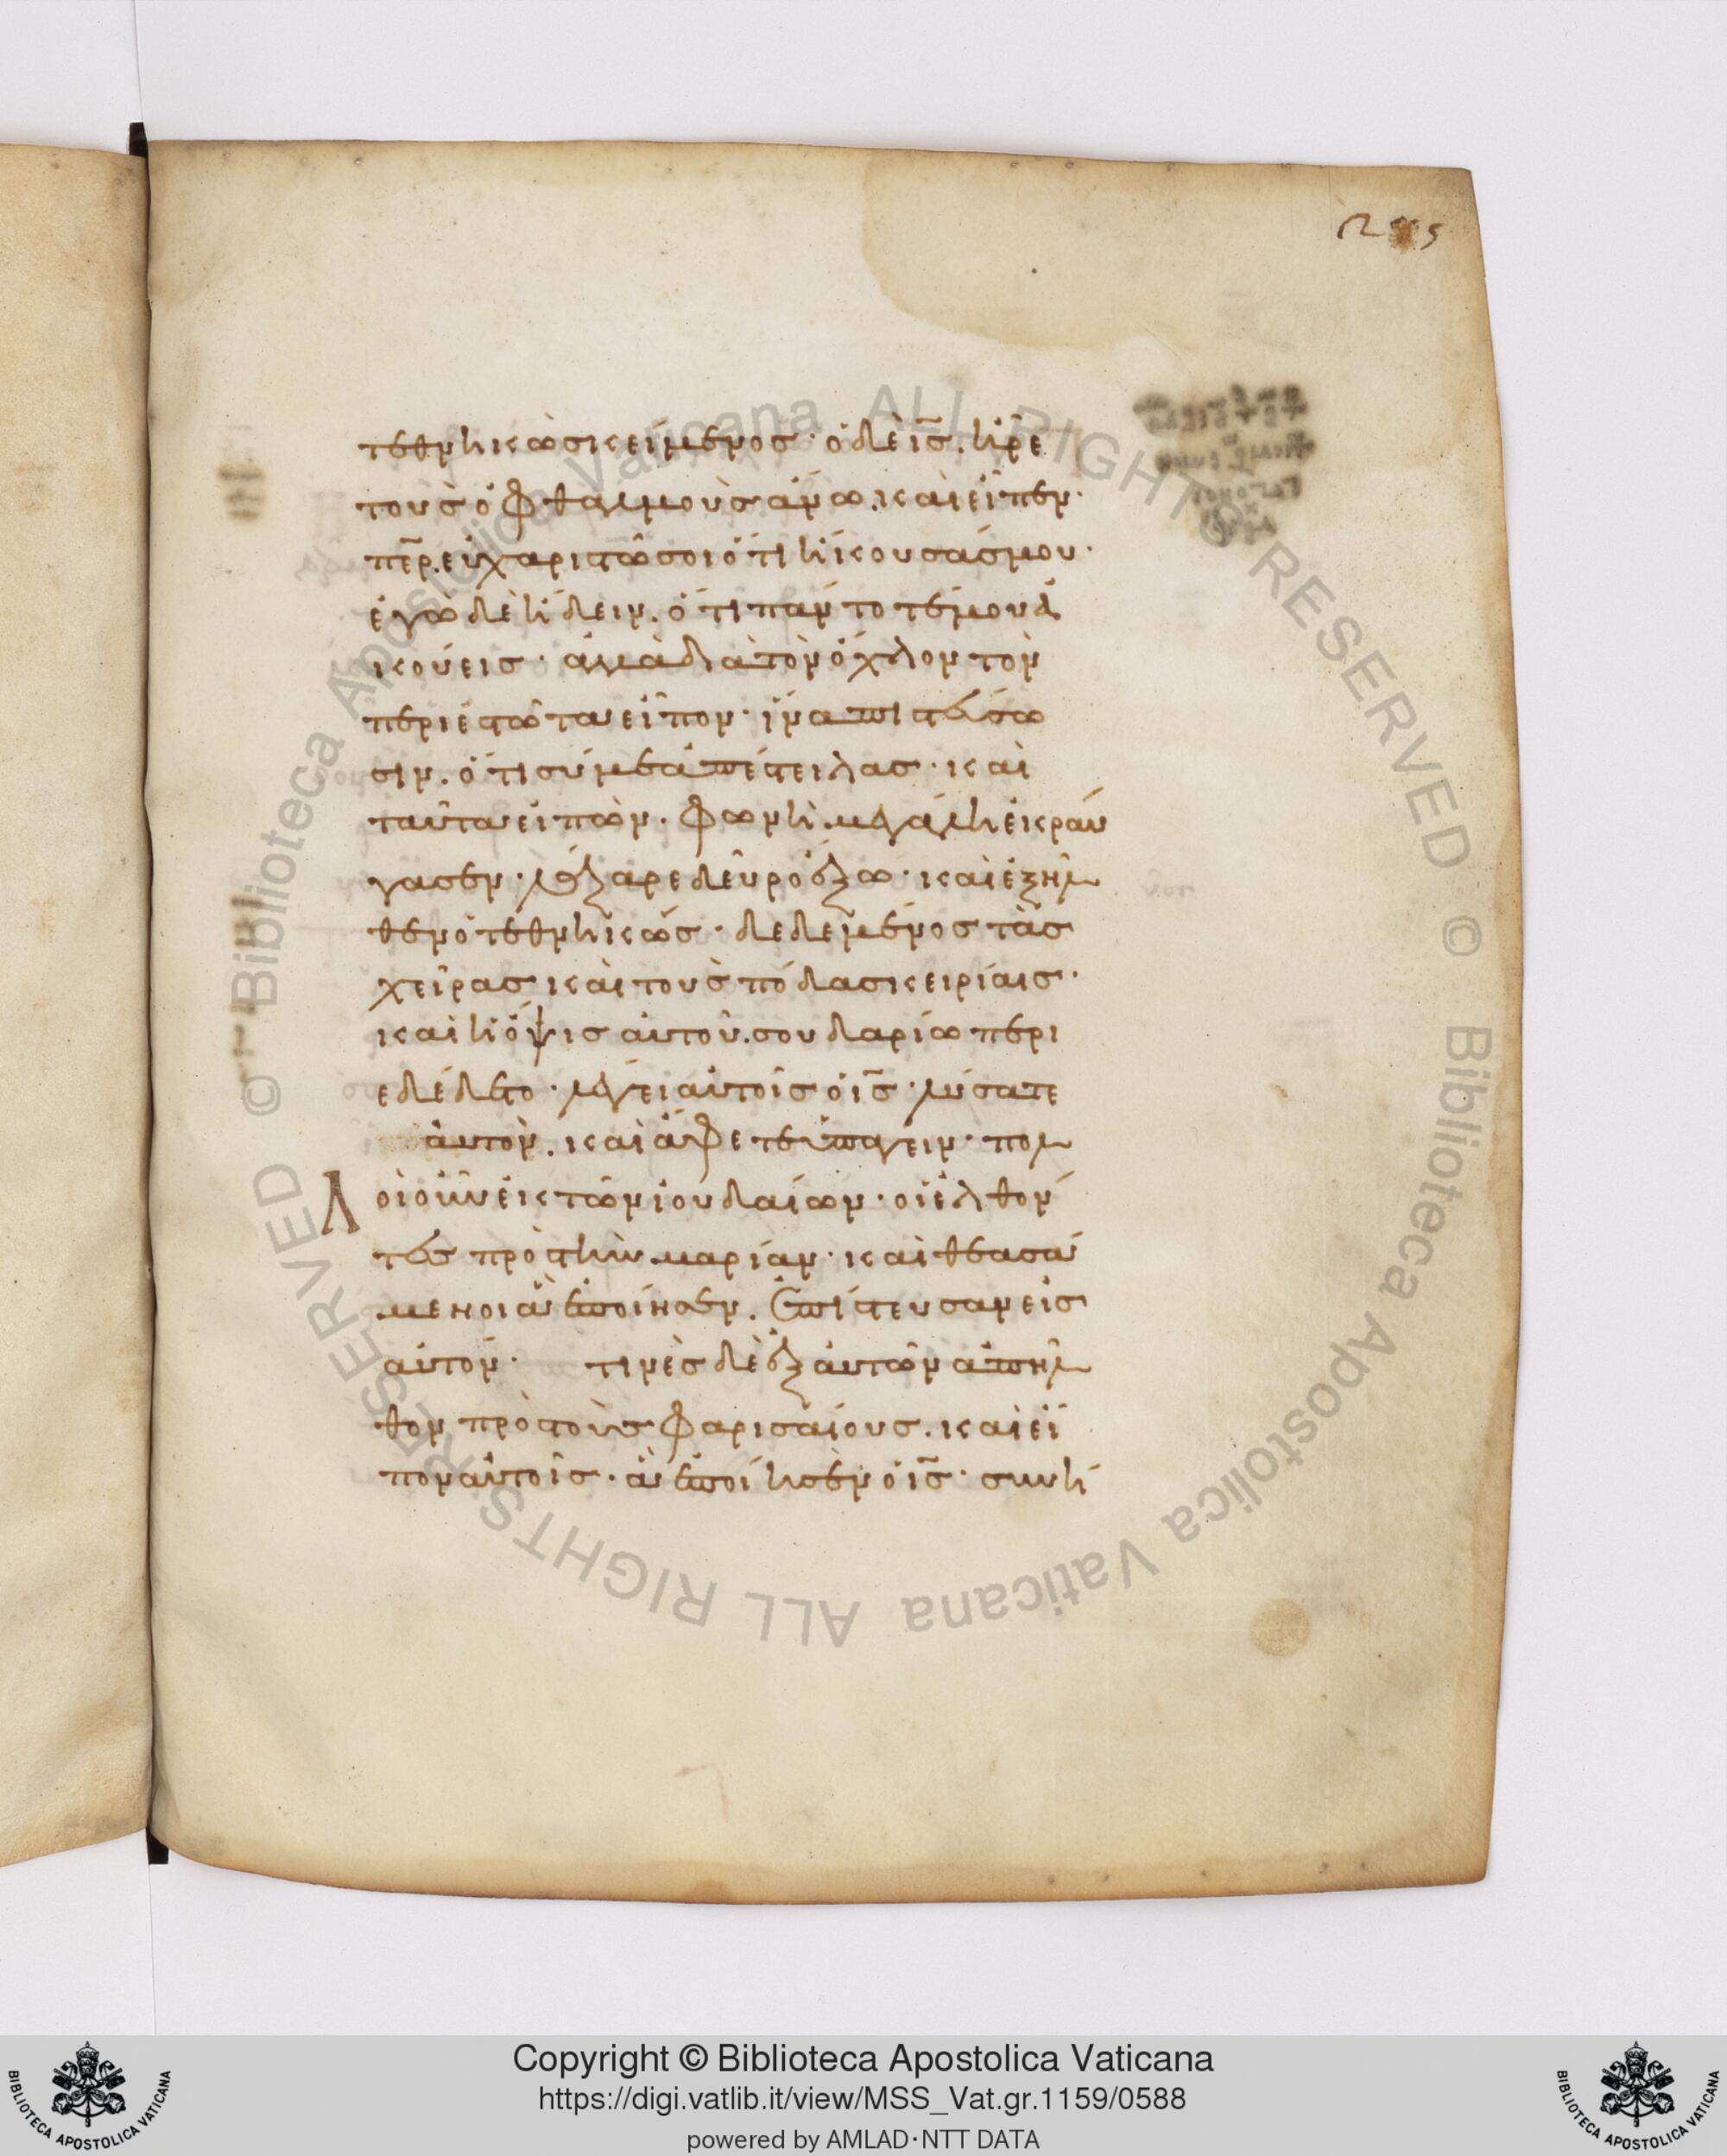 τεθνηκὼς κείμενος· ὁ δὲ ι̅ς̅. ἦρε
τοὺς ὀφθαλμοὺς ἄνω. καὶ εἶπεν·
π̅ε̅ρ̅. εὐχαριστῶ σοι ὅτι ἤκουσάς μου·
ἐγὼ δὲ ἤδειν. ὅτι πάντοτέ μου ἀ
κούεις· ἀλλὰ διὰ τὸν ὄχλον τὸν
περιεστῶτα εἶπον· ἵνα πιστεύσω
σιν. ὅτι σύ με ἀπέστειλας· καὶ
ταῦτα εἰπὼν. φωνῆ μεγάλη ἐκραύ
γασεν· λάζαρε δεῦρο ἔξω· καὶ ἐξῆλ
θεν ὁ τεθνηκώς· δεδεμένος τὰς
χεῖρας καὶ τοὺς πόδας κειρίαις·
καὶ ἡ ὄψις αὐτοῦ. σουδαρίω περι
εδέδετο· λέγει αὐτοῖς ὁ ι̅ς̅· λύσατε
αὐτὸν. καὶ ἄφετε ὑπάγειν· πολ
λ οὶ οὖν ἐκ τῶν ἰουδαίων· οἱ ἐλθόν
τες πρὸς τὴν μαρίαν· καὶ θεασά
μενοι ἃ ἐποίησεν. ἐπίστευσαν εἰς
αὐτόν· τινὲς δὲ ἐξ αὐτῶν ἀπῆλ
θον πρὸς τοὺς φαρισαίους. καὶ εἶ
πον αὐτοῖς. ἃ ἐποίησεν ὁ ι̅ς̅· συνή
Copyright © Biblioteca Apostolica Vaticana
https://digi.vatlib.it/view/MSS_Vat.gr.1159/0588
powered by AMLAD·NTT DATA
BIBLIOTECA APOSTOLICA VATICANA
BIBLIOTECA APOSTOLICA VATICANA
© Biblioteca Apostolica Vaticana ALL RIGHTS RESERVED © Biblioteca Apostolica Vaticana ALL RIGHTS RESERVED